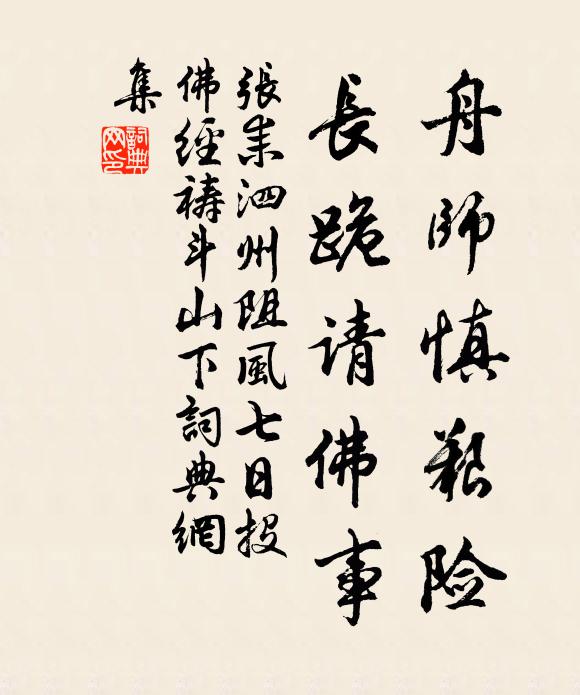 舟師慎艱险
長跪请佛事
張耒泗州阻風七日投
佛經禱斗山下詞典網
集
詞典
网印